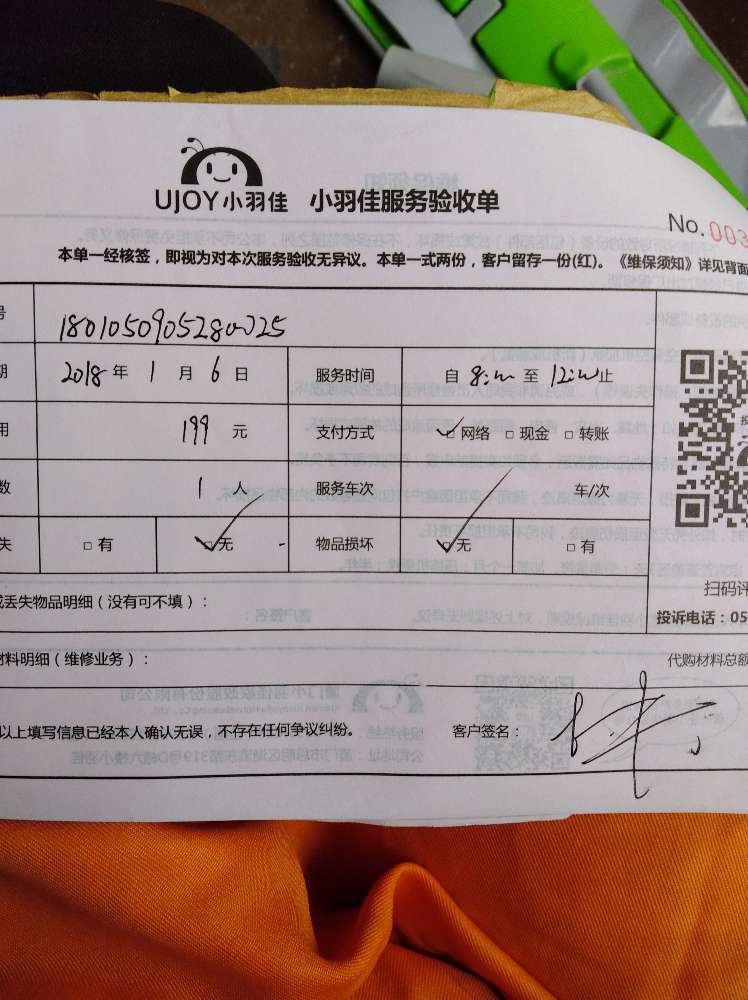 UJOY小羽佳 小羽佳服务验收单
No.003
本单一经核签，即视为对本次服务验收无异议。本单一式两份，客户留存一份(红)。《维保须知》详见背面
号
期 2018 年 1 月 6 日 服务时间 自 8:00 至 12:00 止
用 199 元 支付方式 ✓□ 网络 □ 现金 □ 转账
数 1 人 服务车次 车/次
失 □ 有 ✓□ 无 物品损坏 ✓□ 无 □ 有
扫码评
丢失物品明细（没有可不填）：
投诉电话：05
材料明细（维修业务）：
代购材料总额
以上填写信息已经本人确认无误，不存在任何争议纠纷。 客户签名：